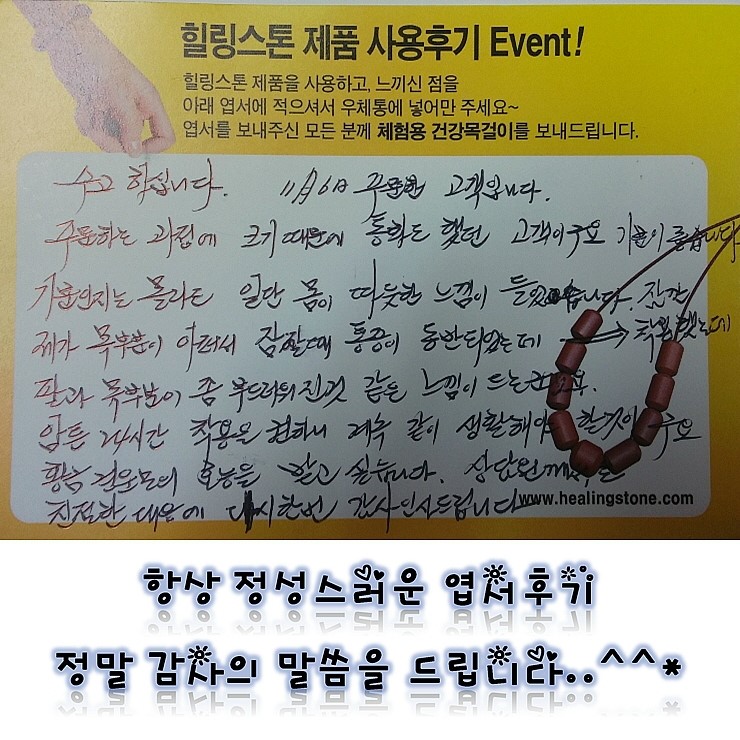 힐링스톤 제품 사용후기 Event!
힐링스톤 제품을 사용하고, 느끼신 점을
아래 엽서에 적으셔서 우체통에 넣어만 주세요~
엽서를 보내주신 모든 분께 체험용 건강목걸이를 보내드립니다.
수고 하십니다. 11月6日 주문한 고객입니다.
주문하는 과정에 크기 때문에 통화도 했던 고객이구요 기분이 좋습니다
기분인지는 몰라도 일단 몸이 따듯한 느낌이 들었습니다. 잠간
제가 목부분이 아퍼서 잠잘때 통증이 동반되었는데 착용했는데
팔과 목부분이 좀 부드러워진것 같은 느낌이 드는
암튼 24시간 착용을 권하니 계속 같이 생활해야 할것이구요
효능을 알고 싶습니다. 상담원
친절한 대응에 다시한번 감사인사드립니다
www.healingstone.com
항상 정성스러운 엽서후기
정말 감사의 말씀을 드립니다..^^*